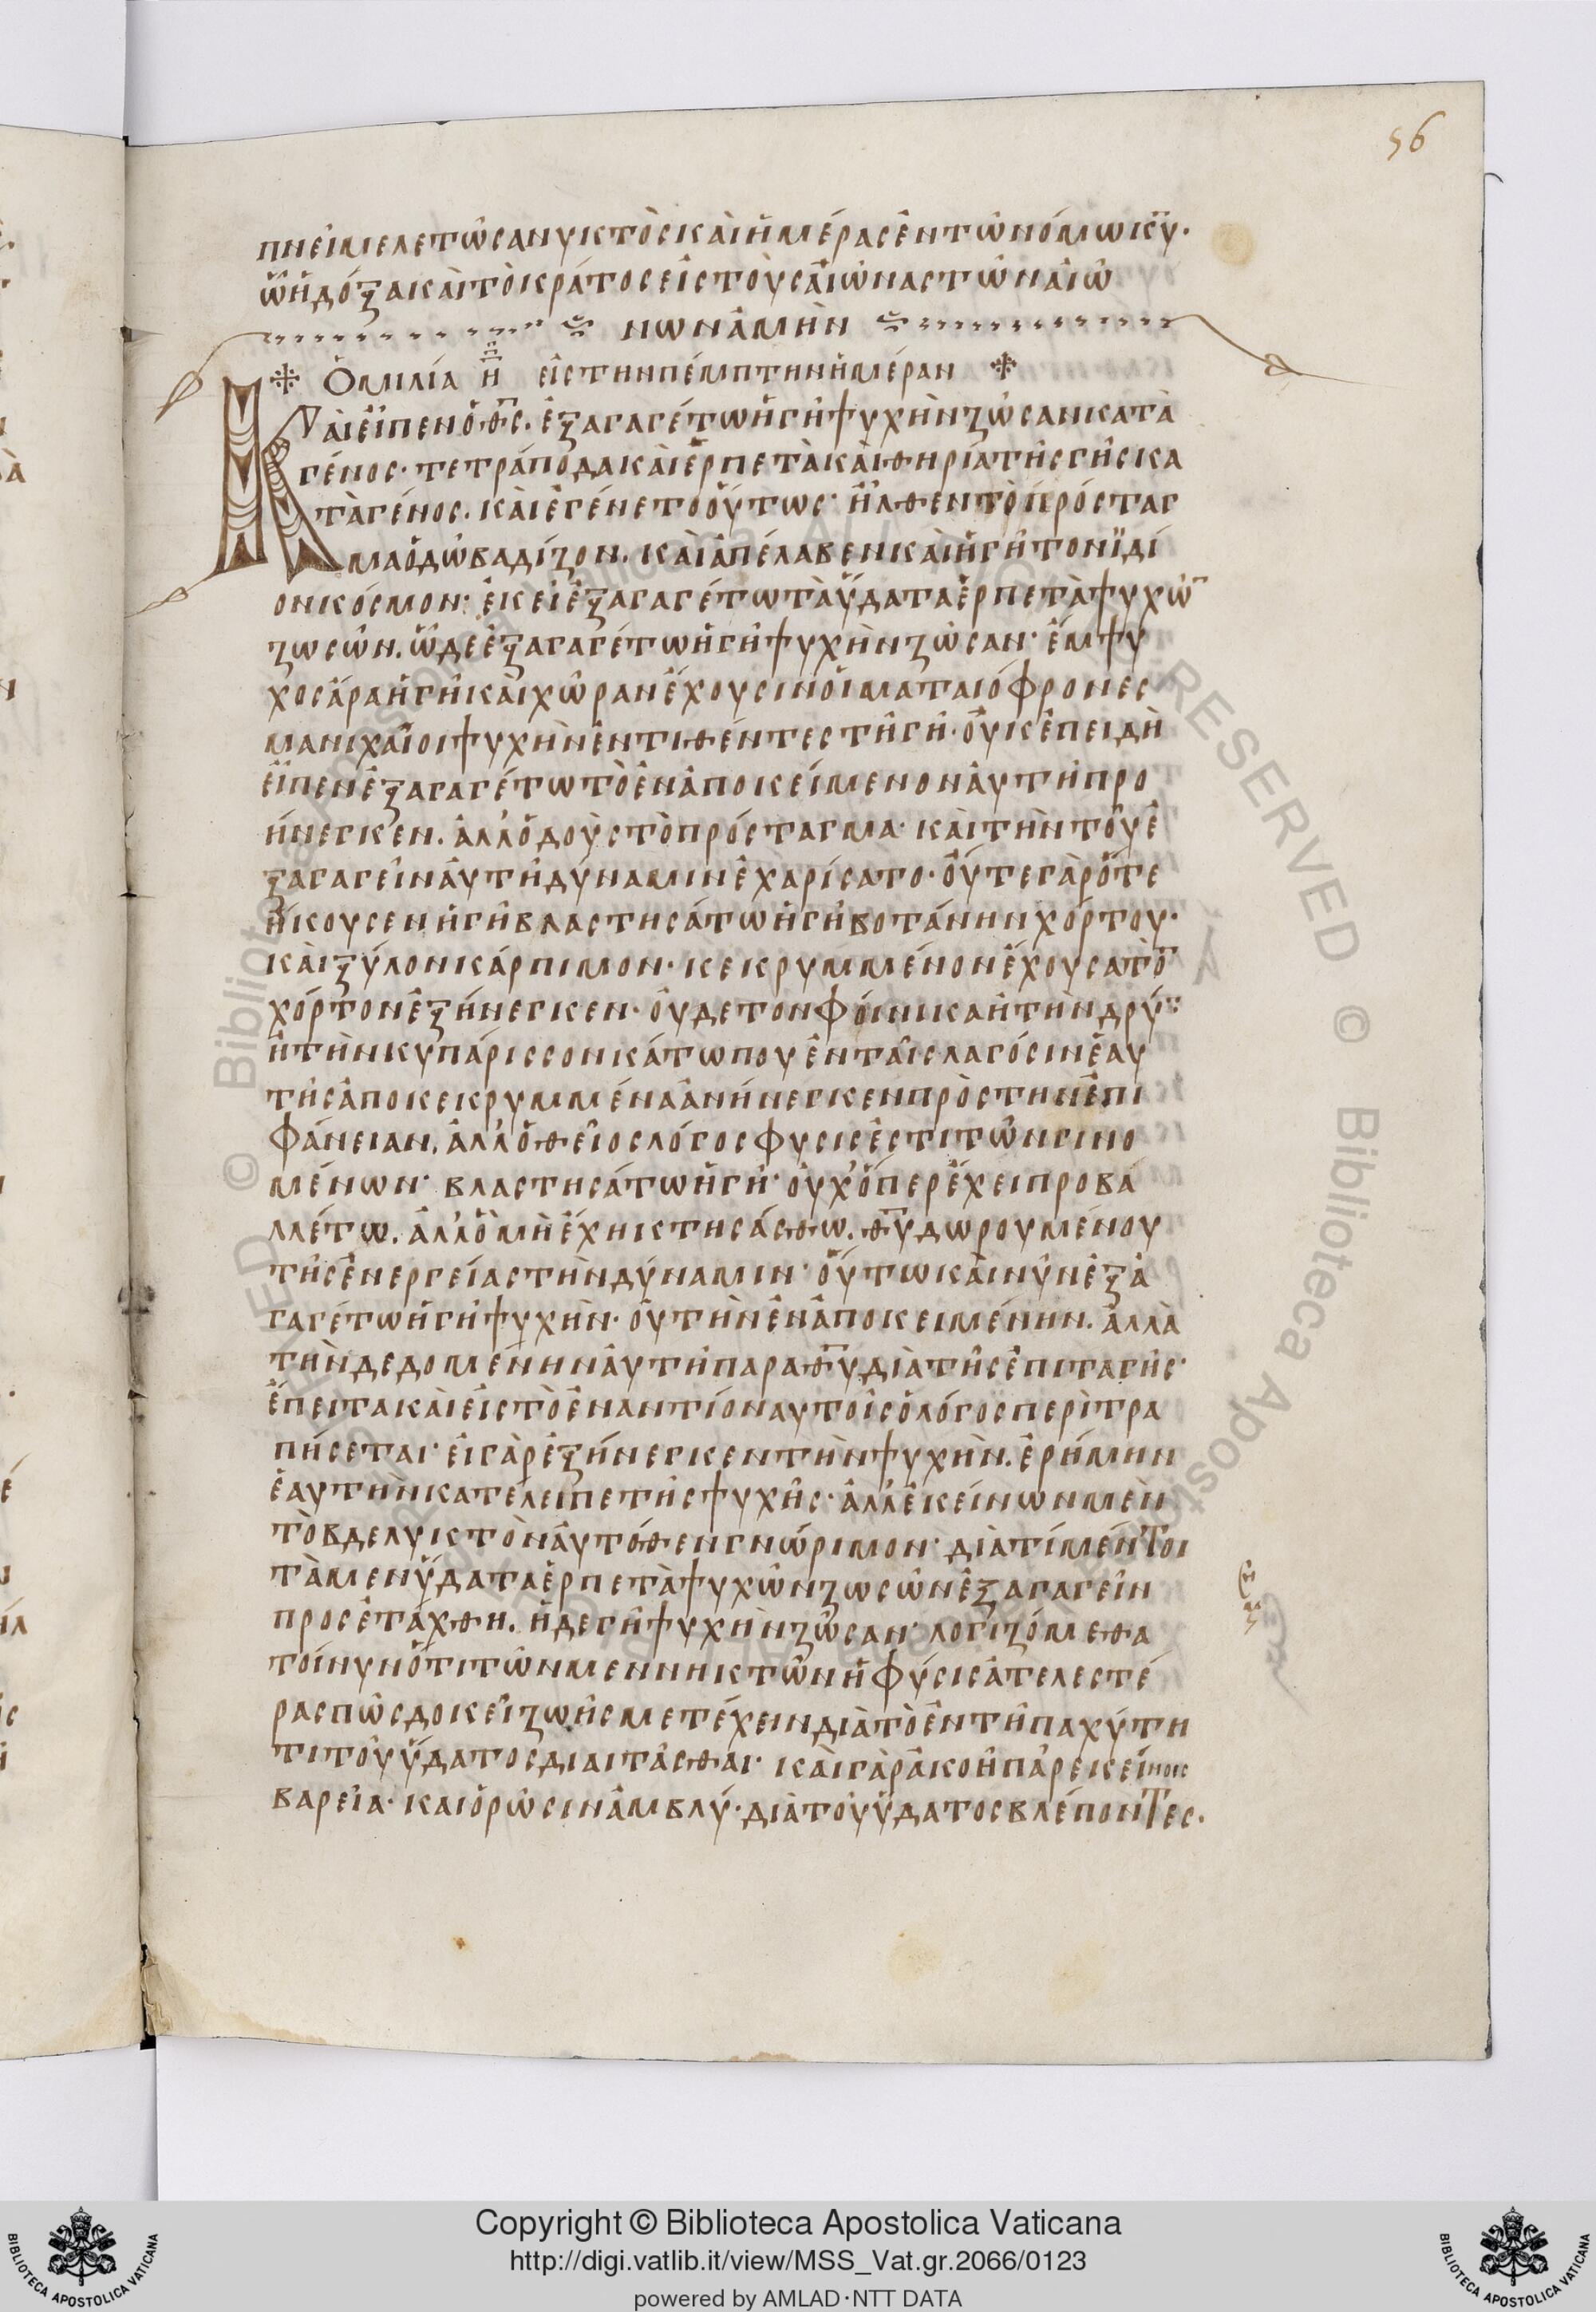 56
πνεῖ μελετῶσα νυκτὸς καὶ ἡμέρας ἐν τῶ νόμω κ̅υ̅·
ὧ ἡ δόξα καὶ τὸ κράτος εἰς τοὺς αἰῶνας τῶν αἰώ
νων ἀμὴν
Ὁμιλία η̅ εἰς τὴν πέμπτην ἡμέραν
Καὶ εἶπεν ὁ θ̅ς̅. ἐξαγαγέτω ἡ γῆ ψυχὴν ζῶσαν κατὰ
γένος· τετράποδα καὶ ἑρπετὰ καὶ θηρία τῆς γῆς κα
τὰ γένος. καὶ ἐγένετο οὕτως· ἦλθεν τὸ πρόσταγ
μα ὁδῶ βαδίζον. καὶ ἀπέλαβεν καὶ ἡ γῆ τὸν ἴδι
ον κόσμον· ἐκεῖ ἐξαγαγέτω τὰ ὕδατα ἑρπετὰ ψυχῶ̅
ζωσῶν. ὧδε ἐξαγαγέτω ἡ γῆ ψυχὴν ζῶσαν· ἔμψυ
χος ἄρα ἡ γῆ καὶ χώραν ἔχουσιν οἱ ματαιόφρονες
μανιχαῖοι ψυχὴν ἐντιθέντες τῆ γῆ. οὐκ ἐπειδὴ
εἶπεν ἐξαγαγέτω τὸ ἐναποκείμενον αὐτῆ προ
ήνεγκεν. ἀλλ' ὁ δοὺς τὸ πρόσταγμα· καὶ τὴν τοῦ ἐ
ξαγαγεῖν αὐτῆ δύναμιν ἐχαρίσατο. οὔτε γὰρ ὅτε
ἤκουσεν ἡ γῆ βλαστησάτω ἡ γῆ βοτάνην χόρτου·
καὶ ξύλον κάρπιμον· κεκρυμμένον ἔχουσα τὸ̅
χόρτον ἐξήνεγκεν· οὐδὲ τὸν φοίνικα ἢ τὴν δρύ̅
ἢ τὴν κυπάρισσον κάτω που ἐν ταῖς λαγόσιν ἑαυ
τῆς ἀποκεκρυμμένα ἀνήνεγκεν πρὸς τὴν ἐπι
φάνειαν. ἀλλ' ὁ θεῖος λόγος φύσις ἐστὶ τῶν γινο
μένων· βλαστησάτω ἡ γῆ· οὐχ ὅπερ ἔχει προβα
λλέτω. ἀλλ' ὃ μὴ ἔχη κτησάσθω. θ̅υ̅ δωρουμένου
τῆς ἐνεργείας τὴν δύναμιν· οὕτω καὶ νῦν ἐξα
γαγέτω ἡ γῆ ψυχὴν· οὐ τὴν ἐναποκειμένην. ἀλλὰ
τὴν δεδομένην αὐτῆ παρὰ θ̅υ̅ διὰ τῆς ἐπιταγῆς·
ἔπειτα καὶ εἰς τὸ ἐναντίον αὐτοῖς ὁ λόγος περιτρα
πήσεται· εἰ γὰρ ἐξήνεγκεν τὴν ψυχὴν. ἐρήμην
ἑαυτὴν κατέλειπε τῆς ψυχῆς· ἀλλ' ἐκείνων μὲν
τὸ βδελυκτὸν αὐτόθεν γνώριμον· διὰ τί μέντοι
τὰ μὲν ὕδατα ἑρπετὰ ψυχῶν ζωσῶν ἐξαγαγεῖν
προσετάχθη. ἡ δὲ γῆ ψυχὴν ζῶσαν· λογιζόμεθα
τοίνυν ὅτι τῶν μὲν νηκτῶν ἡ φύσις ἀτελεστέ
ρας πῶς δοκεῖ ζωῆς μετέχειν διὰ τὸ ἐν τῆ παχύτη
τι τοῦ ὕδατος διαιτᾶσθαι· καὶ γὰρ ἀκοὴ παρ' ἐκείνοις
βαρεῖα· καὶ ὁρῶσιν ἀμβλύ· διὰ τοῦ ὕδατος βλέποντες.
Copyright © Biblioteca Apostolica Vaticana
http://digi.vatlib.it/view/MSS_Vat.gr.2066/0123
powered by AMLAD·NTT DATA